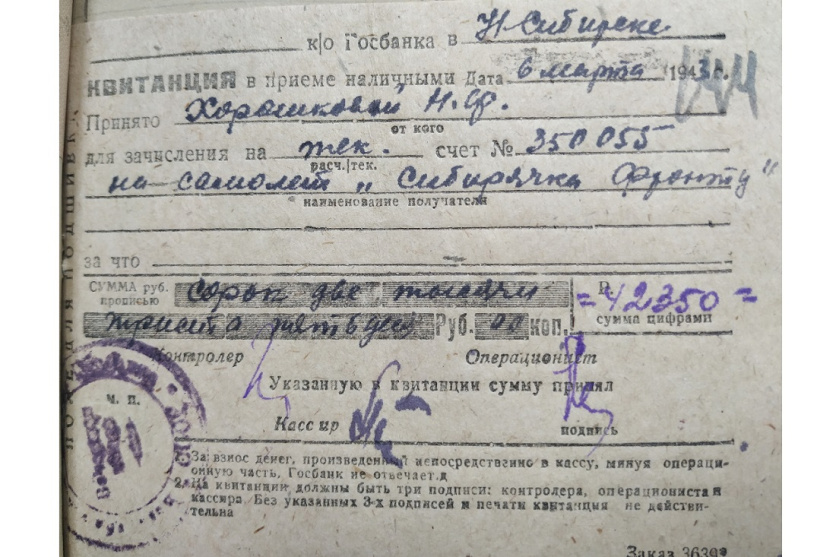 к|о Госбанка в Н-Сибирске
КВИТАНЦИЯ в приеме наличными Дата 6 марта 1943г.
Принято Хорошковой Н. Ф.
от кого
для зачисления на тек. счет № 350055
расч.|тек.
на самолет „Сибирячка Фронту"
наименование получателя
за что
СУММА руб. прописью сорок две тысячи
=42350=
сумма цифрами
триста пятьдес Руб. 00 коп.
Контролер Операционист
Указанную в квитанции сумму принял
м. п.
Кассир
подпись
ПОЛЕ ДЛЯ ПОДШИВКИ
За взнос денег, произведенный непосредственно в кассу, минуя операци-
онную часть, Госбанк не отвечает.
2. На квитанции должны быть три подписи: контролера, операциониста и
кассира. Без указанных 3-х подписей и печати квитанция не действи-
тельна
Заказ 36399